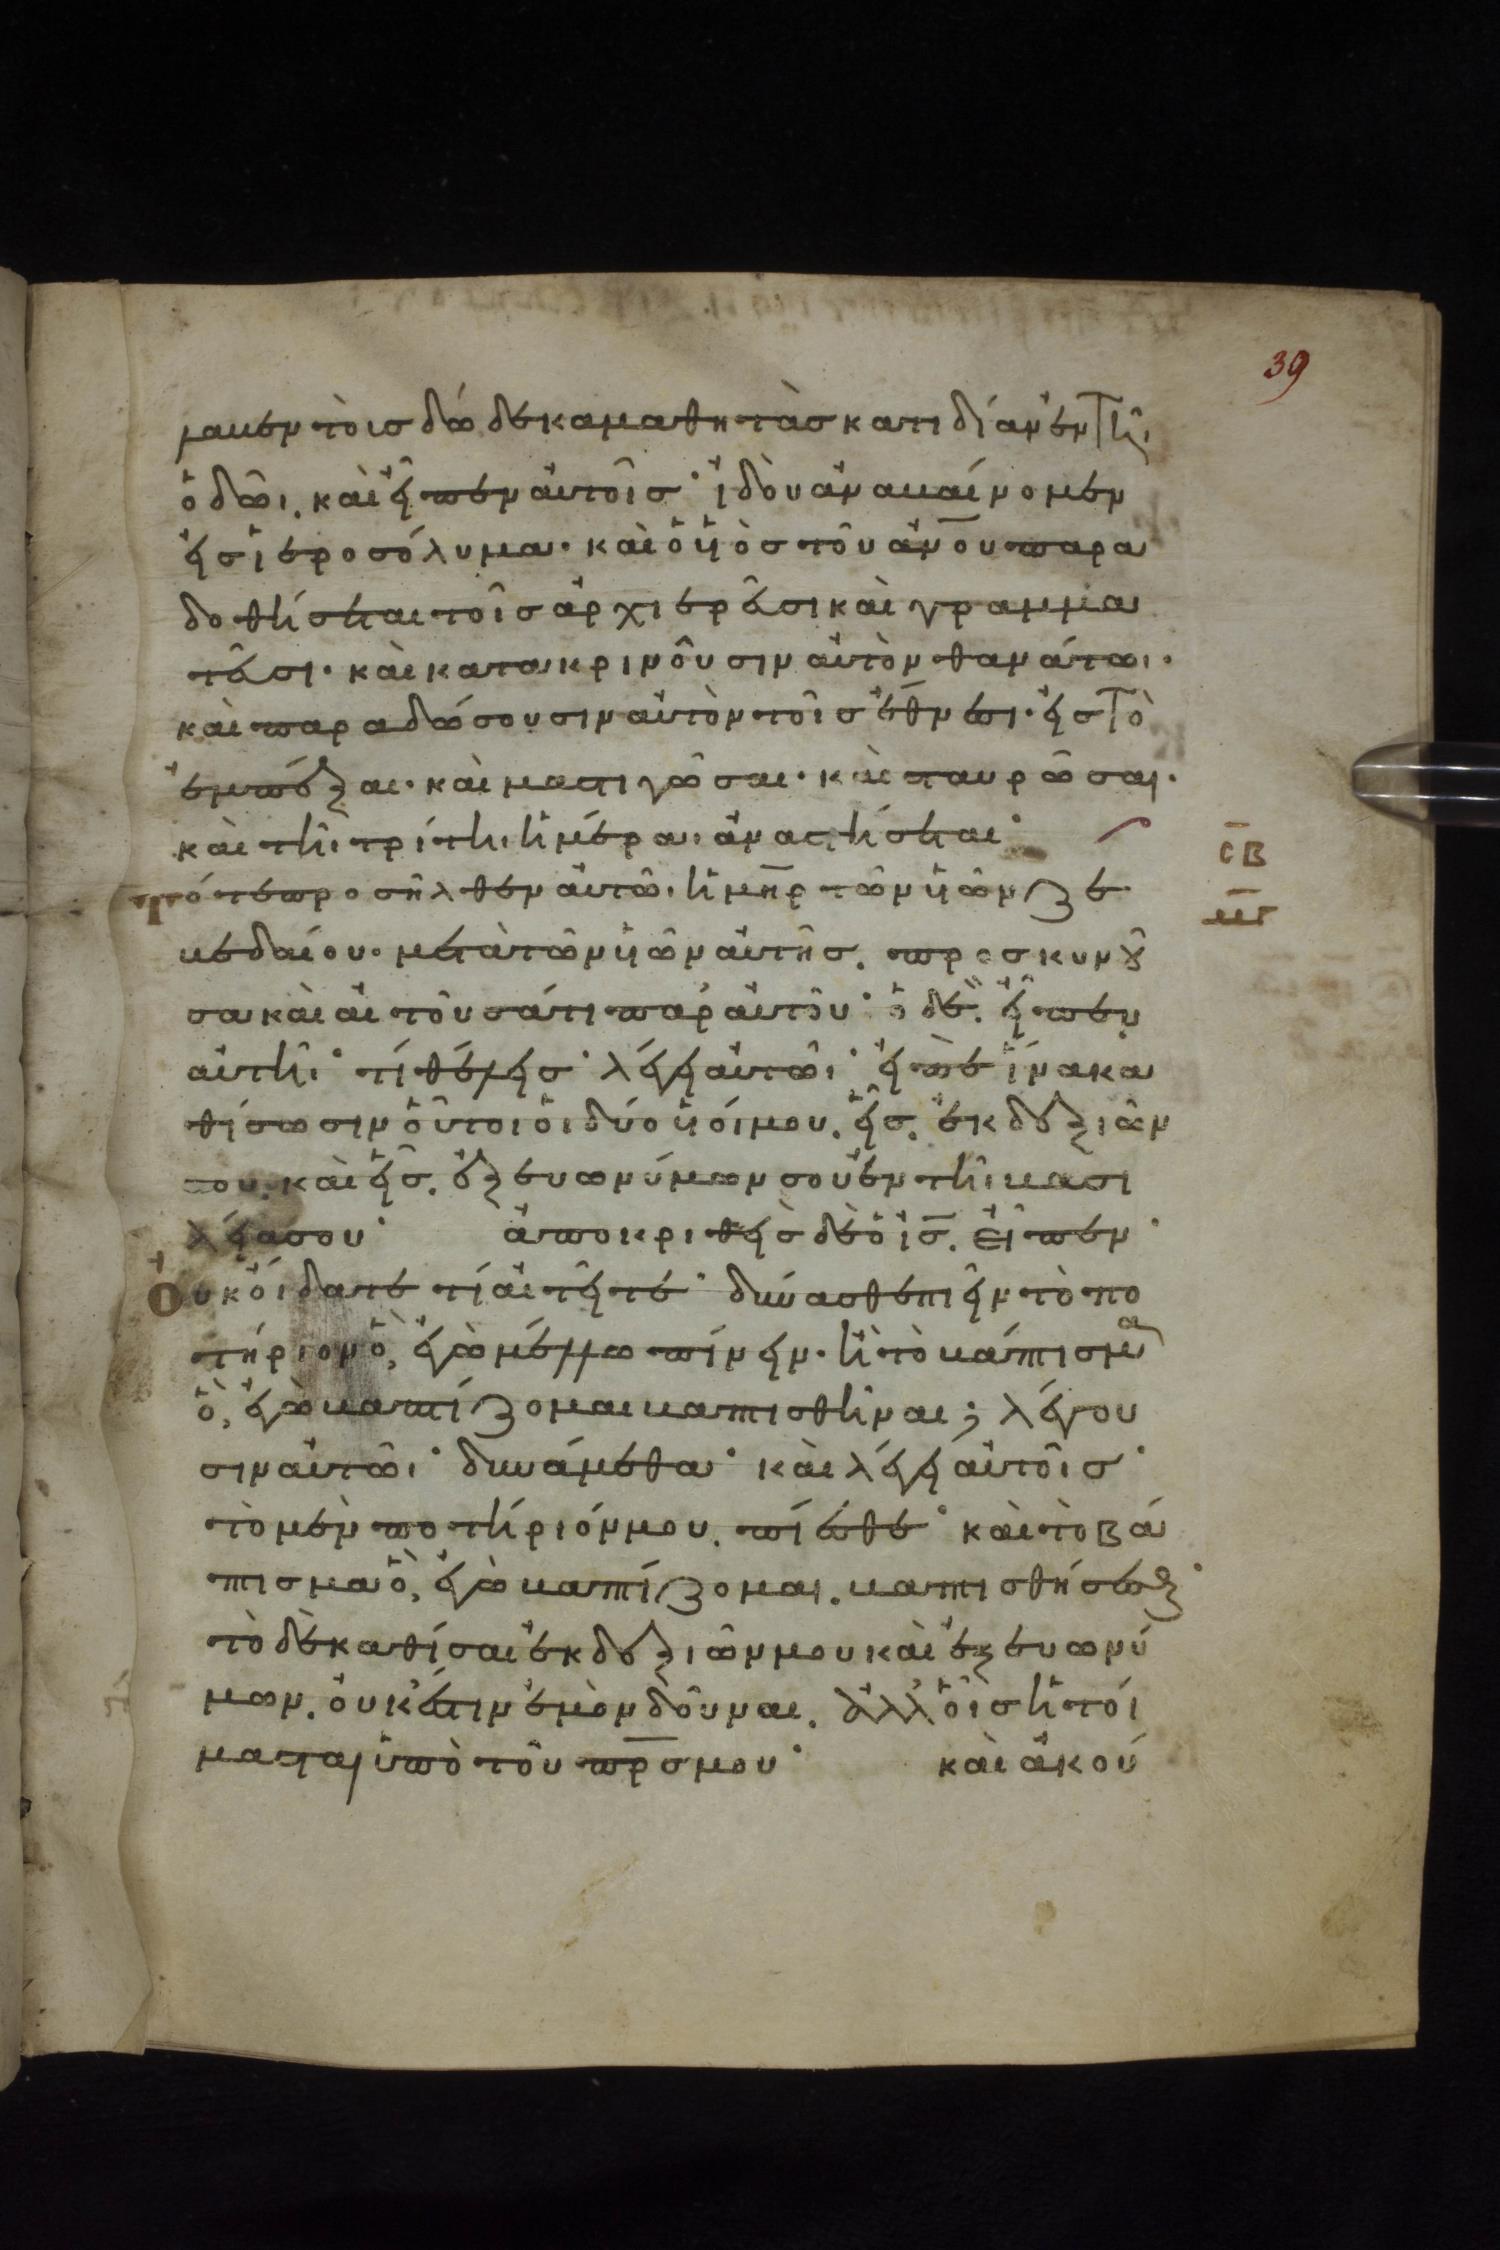 39
λαβεν τοὺς δώδεκα μαθητὰς κατιδίαν ἐν τῆι
ὁδῶι. καὶ εἶπεν αὐτοῖς· ἰδοὺ ἀναβαίνομεν
εἰς ἱεροσόλυμα· καὶ ὁ υἱὸς τοῦ ἀν̅ου παρα
δοθήσεται τοῖς ἀρχιερεῦσι καὶ γραμμα
τεῦσι· καὶ κατακρινοῦσιν αὐτὸν θανάτωι·
καὶ παραδώσουσιν αὐτὸν τοῖς ἔθνεσι· εἰς τὸ
ἐμπαῖξαι· καὶ μαστιγῶσαι· καὶ σταυρῶσαι·
καὶ τῆι τρίτηι ἡμέραι ἀναστήσεται·
ς̅β̅
μ̅γ̅
τότε προσῆλθεν αὐτῶι ἡ μη̅ρ τῶν υἱῶν ζε
βεδαίου· μετὰ τῶν υἱῶν αὐτῆς. προσκυνοῦ
σα καὶ αἰτοῦσά τι παρ' αὐτοῦ· ὁ δὲ. εἶπεν
αὐτῆι· τί θέλεις· λέγει αὐτῶι· εἰπὲ ἵνα κα
θίσωσιν οὗτοι οἱ δύο υἱοί μου. εἷς. ἐκ δεξιῶν
σου. καὶ εἷς. ἐξ εὐωνύμων σου ἐν τῆι βασι
λεία σου· ἀποκριθεὶς δὲ ὁ ι̅ς̅. εἶπεν·
Οὐκ οἴδατε τί αἰτεῖτε· δύνασθε πιεῖν τὸ πο
τήριον ὃ, ἐγὼ μέλλω πίνειν· ἢ τὸ βάπτισμα
ὃ, ἐγὼ βαπτίζομαι βαπτισθῆναι; λέγου
σιν αὐτῶι· δυνάμεθα· καὶ λέγει αὐτοῖς·
τὸ μὲν ποτήριόν μου. πίεσθε· καὶ τὸ βά
πτισμα ὃ, ἐγὼ βαπτίζομαι. βαπτισθήσεσθε·
τὸ δὲ καθίσαι ἐκ δεξιῶν μου καὶ ἐξ εὐωνύ
μων. οὐκ ἔστιν ἐμὸν δοῦναι. ἀλλ' οἷς ἡτοί
μασται ὑπὸ τοῦ πρ̅ς μου· καὶ ἀκού